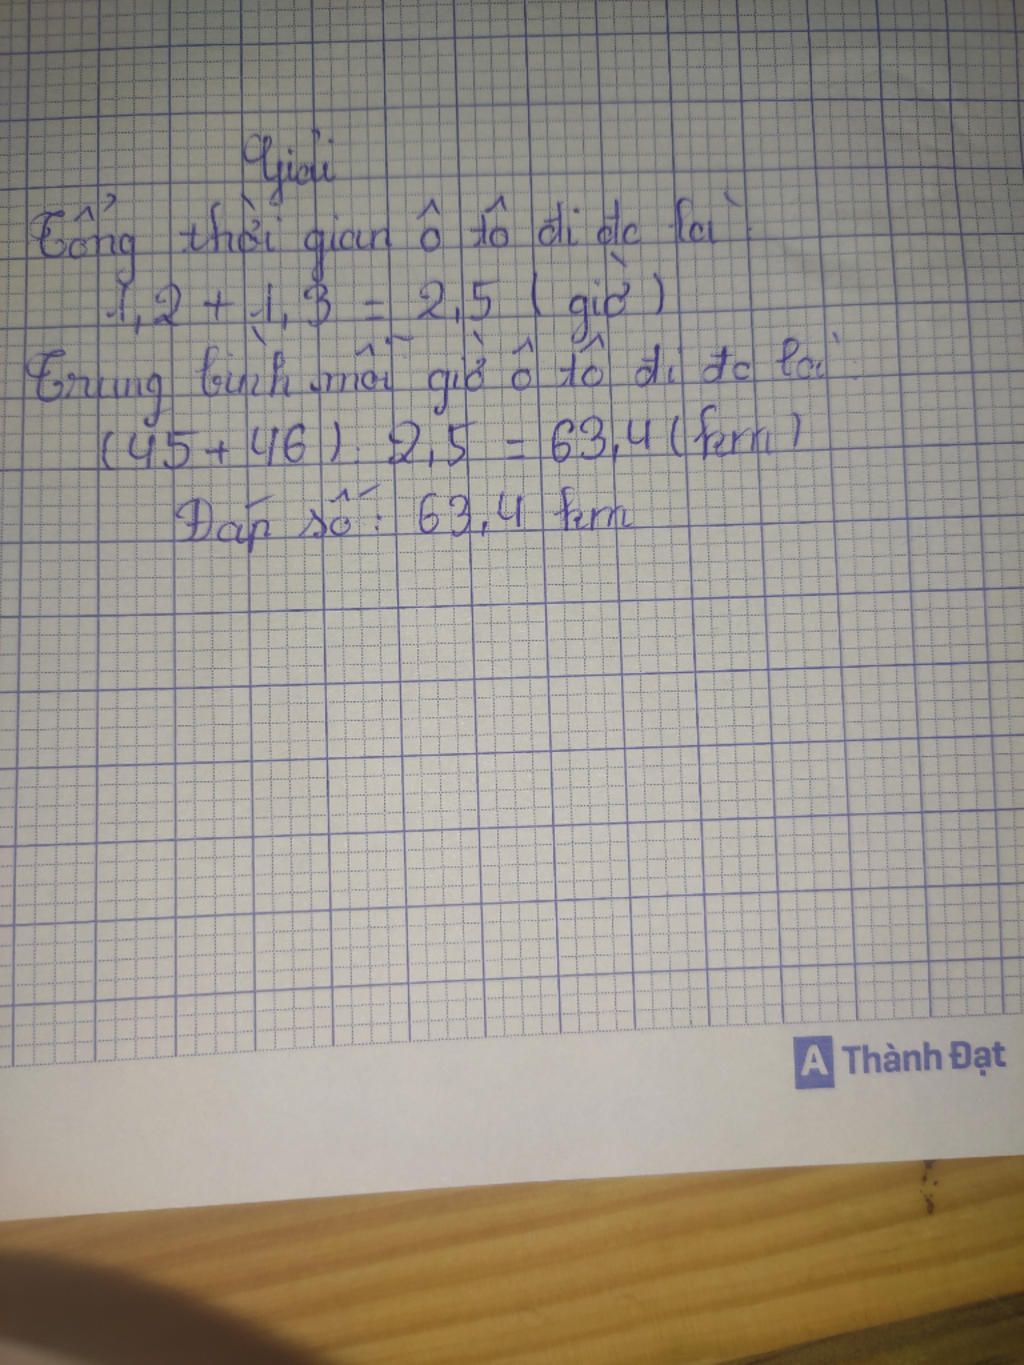 Giải
Tổng thời gian ô tô đi đc là:
1,2 + 1,3 = 2,5 ( giờ )
Trung bình mỗi giờ ô tô đi đc là:
(45 + 46) : 2,5 = 63,4 (km)
Đáp số : 63,4 km
A Thành Đạt